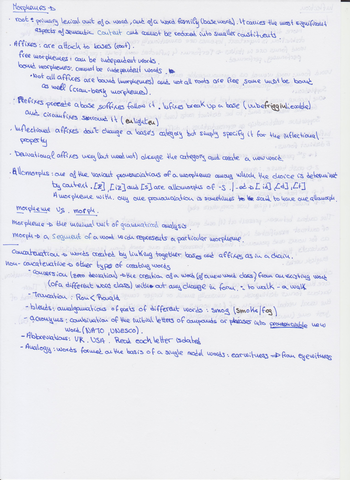 Morphemes :
root : primary lexical unit of a word, and of a word family (base word). It carries the most significant
aspects of semantic content and cannot be reduced into smaller constituents.
Affixes : are attach to bases (root).
free morphemes : can be independent words.
bound morphemes : cannot be independent words.
· Not all affixes are bound morphemes and not all roots are free, some must be bound
as well (cran-berry morphemes).
· Prefixes precede a base, suffixes follow it, infixes break up a base
and circumfixes surround it (enlighten)
· Inflectional affixes don't change a base's category but simply specify it for the inflectional
property
· Derivational affixes may (but need not) change the category and create a new word.
· Allomorphs : one of the variant pronunciations of a morpheme among which the choice is determined
by context. [z], [iz] and [s] are allomorphs of -s / -ed → [id], [d], [t]
A morpheme with only one pronunciation is sometimes said to have one allomorph.
morpheme vs. morph.
morpheme → the minimal unit of grammatical analysis
morph → a segment of a word which represents a particular morpheme.
concatenative → words created by linking together bases and affixes as in a chain.
non-concatenative → other types of creating words
- conversion (zero derivation) → the creation of a word (of a new word class) from an existing word
(of a different word class) without any change in form : to walk - a walk
- Truncation : Ron < Ronald
- blends : amalgamations of parts of different words : smog (smoke/fog)
- acronyms : combination of the initial letters of compounds or phrases into pronounceable new
word (NATO, UNESCO).
- Abbreviations : UK, USA. Read each letter isolated
- Analogy : words formed on the basis of a single model words : earwitness → from eyewitness